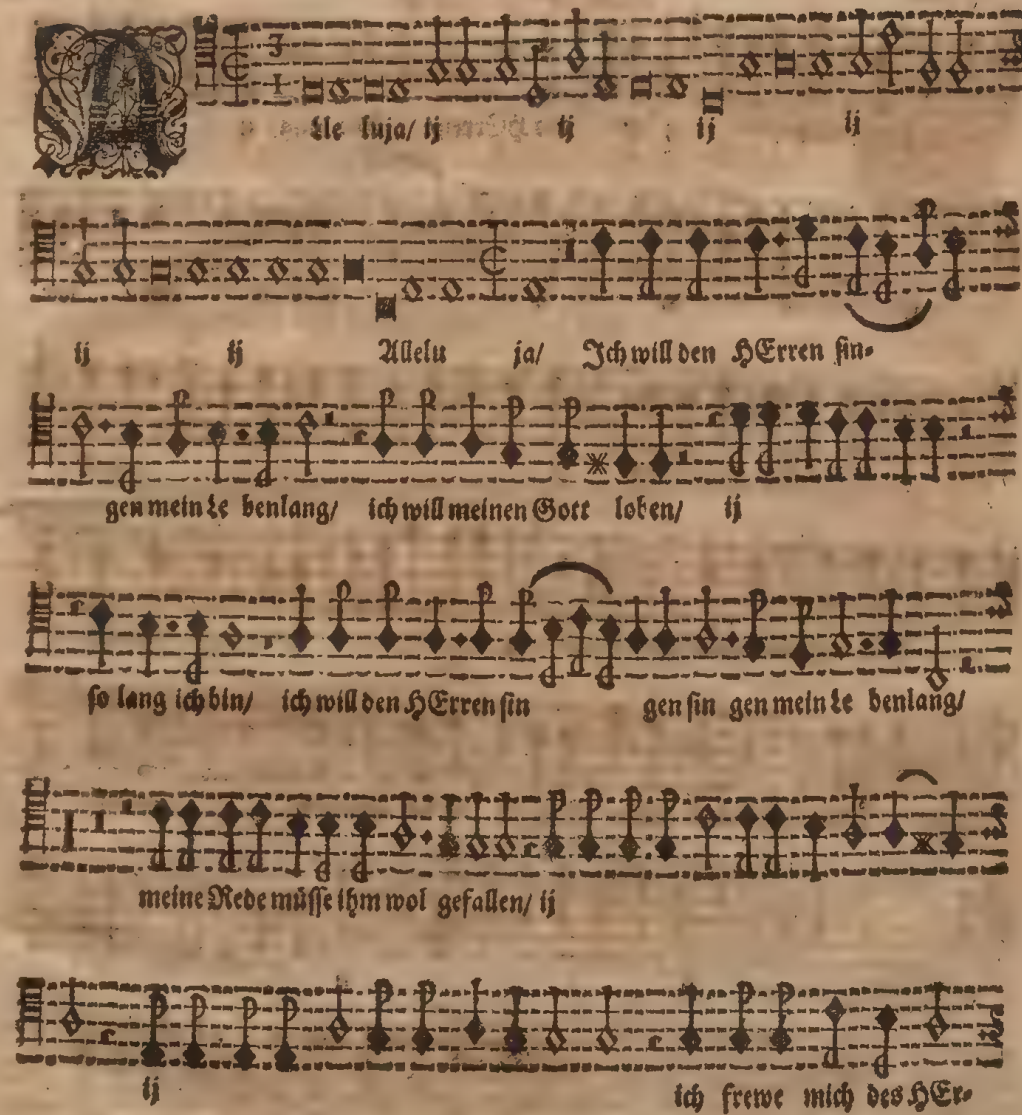 Alle luja/ ij ij ij ij
ij ij Allelu ja/ Ich will den HErren sin-
gen mein Le benlang/ ich will meinen Gott loben/ ij
so lang ich bin/ ich will den HErren sin gen sin gen mein Le benlang/
meine Rede müsse ihm wol gefallen/ ij
ij ich frewe mich des HEr-